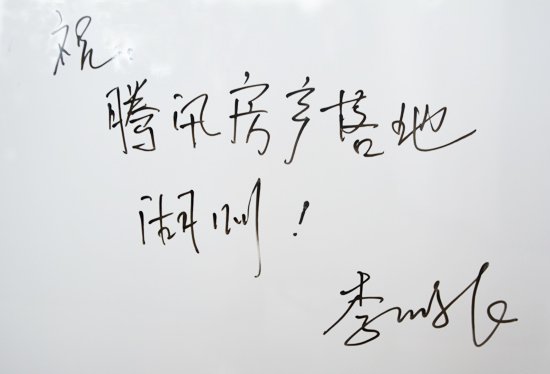 祝
腾讯房产落地
湖州！
李